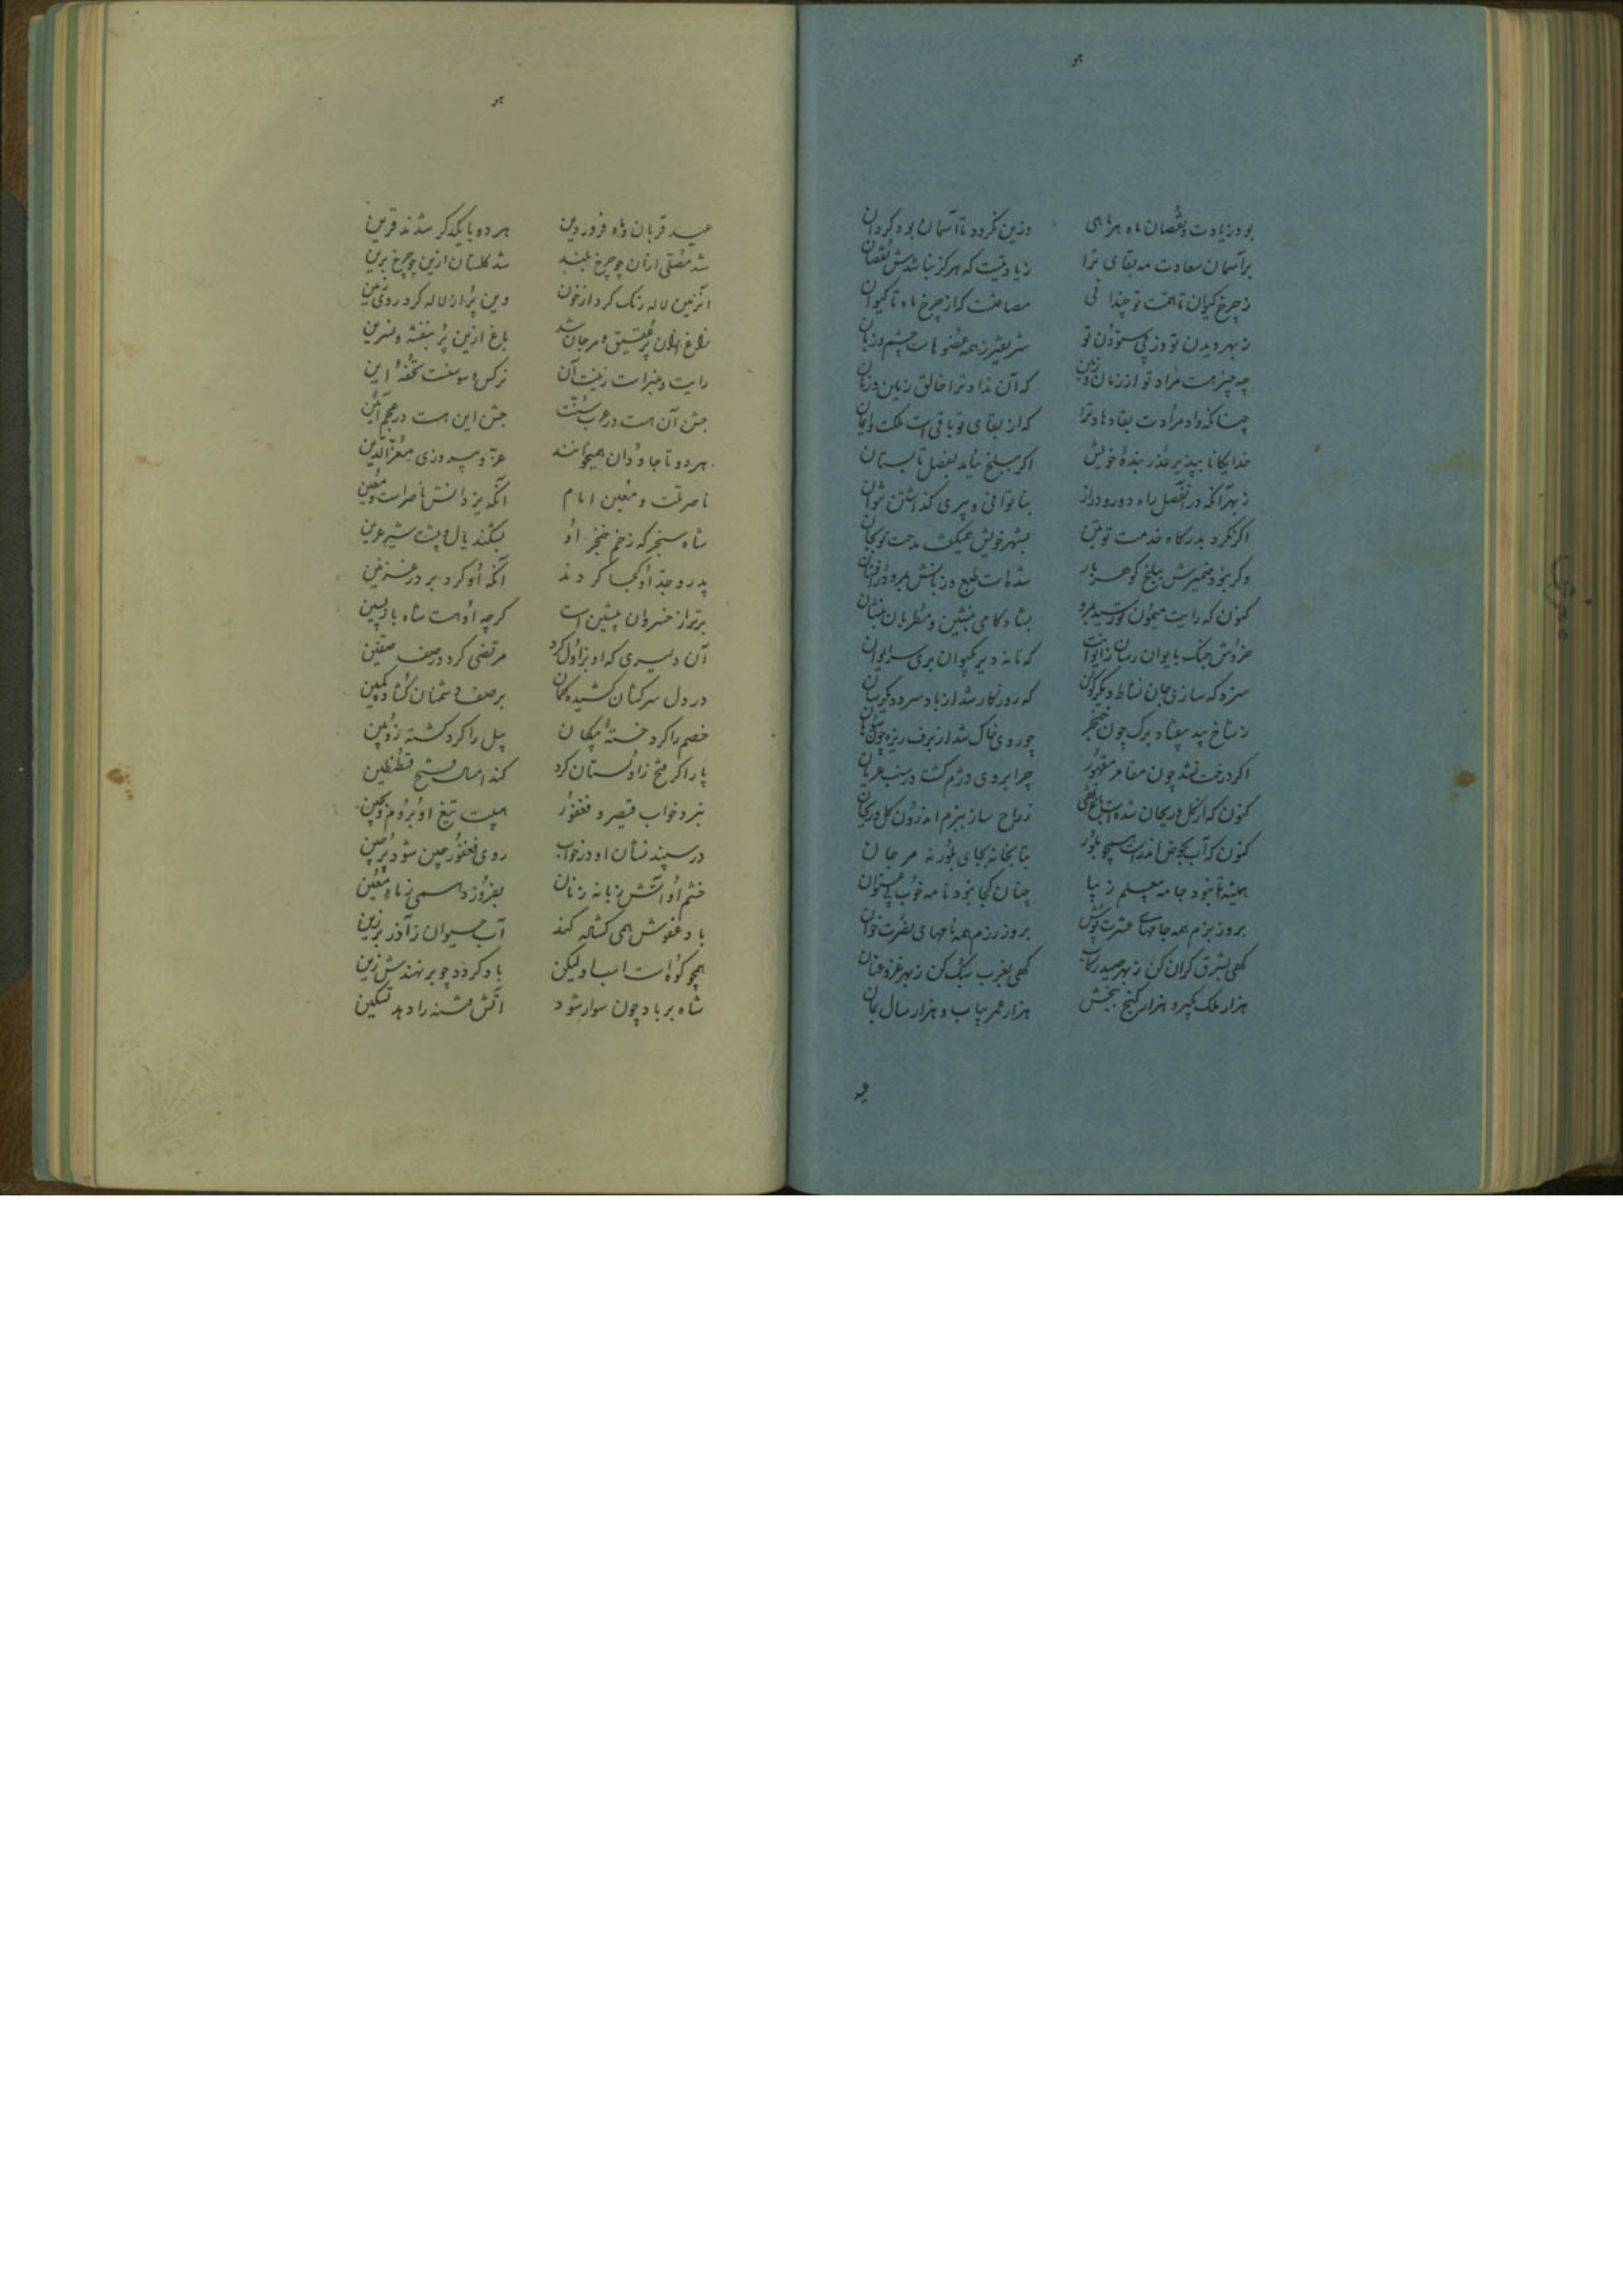 هو
بود زیادت و نقصان ماه هر ماهی وزین نکردد تا آسمان بود کردان
بر آسمان سعادت مه بقای ترا زیادتیست که هرکز نباشدش نقصان
ز چرخ کیوان تا همت تو چندانی مسافتست که از چرخ ماه تا کیوان
ز بهر دیدن تو وز پی ستودن تو شریفتر ز همه عضوهاست چشم و زبان
چه چیز هست مراد تو از زمان و زمین که آن نداد ترا خالق زمین و زمان
چنانکه داد مرادت بقا دهاد ترا که از بقای تو باقی است ملکت و ایمان
خدایکانا بپذیر عذر بنده خویش اکر ببلخ نیامد بفصل تابستان
ز بهر آنکه در آن فصل راه دور و دراز بناتوانی و پیری کذاشتن نتوان
اکر نکرد بدرکاه خدمت تو بتن بشهر خویش همیکفت مدحت تو بجان
وکر نبود ضمیرش ببلخ کوهر بار شده است طبع و زبانش بمرو در افشان
کنون که رایت میمون تو رسید بمرو بشادکامی بنشین و مطربان بنشان
خروش چنک بایوان رسان ز ایوانت که تا نه دیر بکیوان بری سر ایوان
سزد که سازی جان نشاط دیکرکون که روزکار شد از باد سرد دیکر سان
ز شاخ بید بیفتاد برک چون خنجر چو روی خاک شد از برف ریزه چون سوهان
اکر درخت نشد چون مقامر مقهور چرا بروی دژم کشت و رنب عریان
کنون که از کل و ریحان شده است باغ تهی ز راح ساز ببزم اندرون کل و ریحان
کنون که آب بحوض اندر است همچو بلور بتابخانه بجای بلور نه مرجان
همیشه تا نبود جامه بی‌علم زیبا چنان کجا نبود نامه خوب بی عنوان
بروز بزم همه جامهای عشرت پوش بروز رزم همه نامهای نصرت خوان
کهی بشرق کران کن ز بهر صید رکاب کهی بغرب سبک کن ز بهر غزو عنان
هزار ملک بکیر و هزار کنج ببخش هزار عمر بیاب و هزار سال بمان
عید
هو
عید قربان و ماه فروردین هر دو با یکدکر شدند قرین
شد مصلی از آن چو چرخ بلند شد کلستان ازین چو چرخ برین
آن زمین لاله رنک کرد از خون وین پر از لاله کرد روی زمین
راغ از آن پر عقیق و مرجان شد باغ ازین پر بنفشه و نسرین
رایت و منبر است زینت آن نرکس و سوسنست تحفه این
جشن آن هست در عرب سنت جشن این هست در عجم آئین
هر دو تا جاودان همیخوانند عز و پیروزی معز الدین
ناصر ملت و معین امام آنکه یزدانش ناصر است و معین
شاه سنجر که زخم خنجر او بشکند یال و پشت شیر عرین
پدر و جد او کجا کردند آنکه او کرد بر در غزنین
برتر از خسروان پیشین است کرچه او هست شاه بازپسین
آن دلیری که او بزاول کرد مرتضی کرد در صف صفین
در دل سرکشان کشیده کمان بر صف دشمنان کشاد کمین
خصم را کرد خسته پیکان پیل را کرد کشته زوبین
پار اکر فتح زاولستان کرد کند امسال فتح قسطنطین
ببرد خواب قیصر و فغفور هیبت تیغ او بروم و بچین
در سپند نشان او در خواب روی فغفور چین شود پر چین
خشم او آتش زبانه زنان بفروزد همی ز ماء معین
باد عفوش همی کشاده کند آب حیوان ز آذر برزین
همچو کوه است اسبا ولیکن باد کردد چو بر نهندش زین
شاه بر باد چون سوار شود آتش فتنه را دهد تسکین